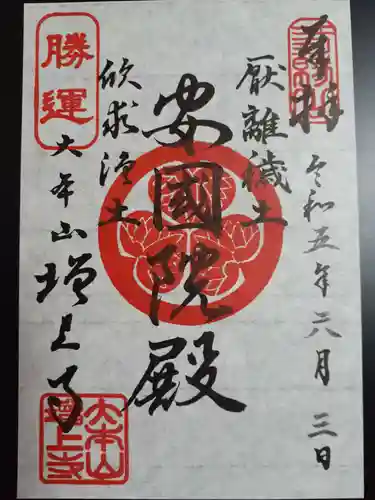 奉拝
令和五年六月三日
厭離穢土
安國院殿
欣求浄土
勝運
大本山
増上寺
大本山
増上寺